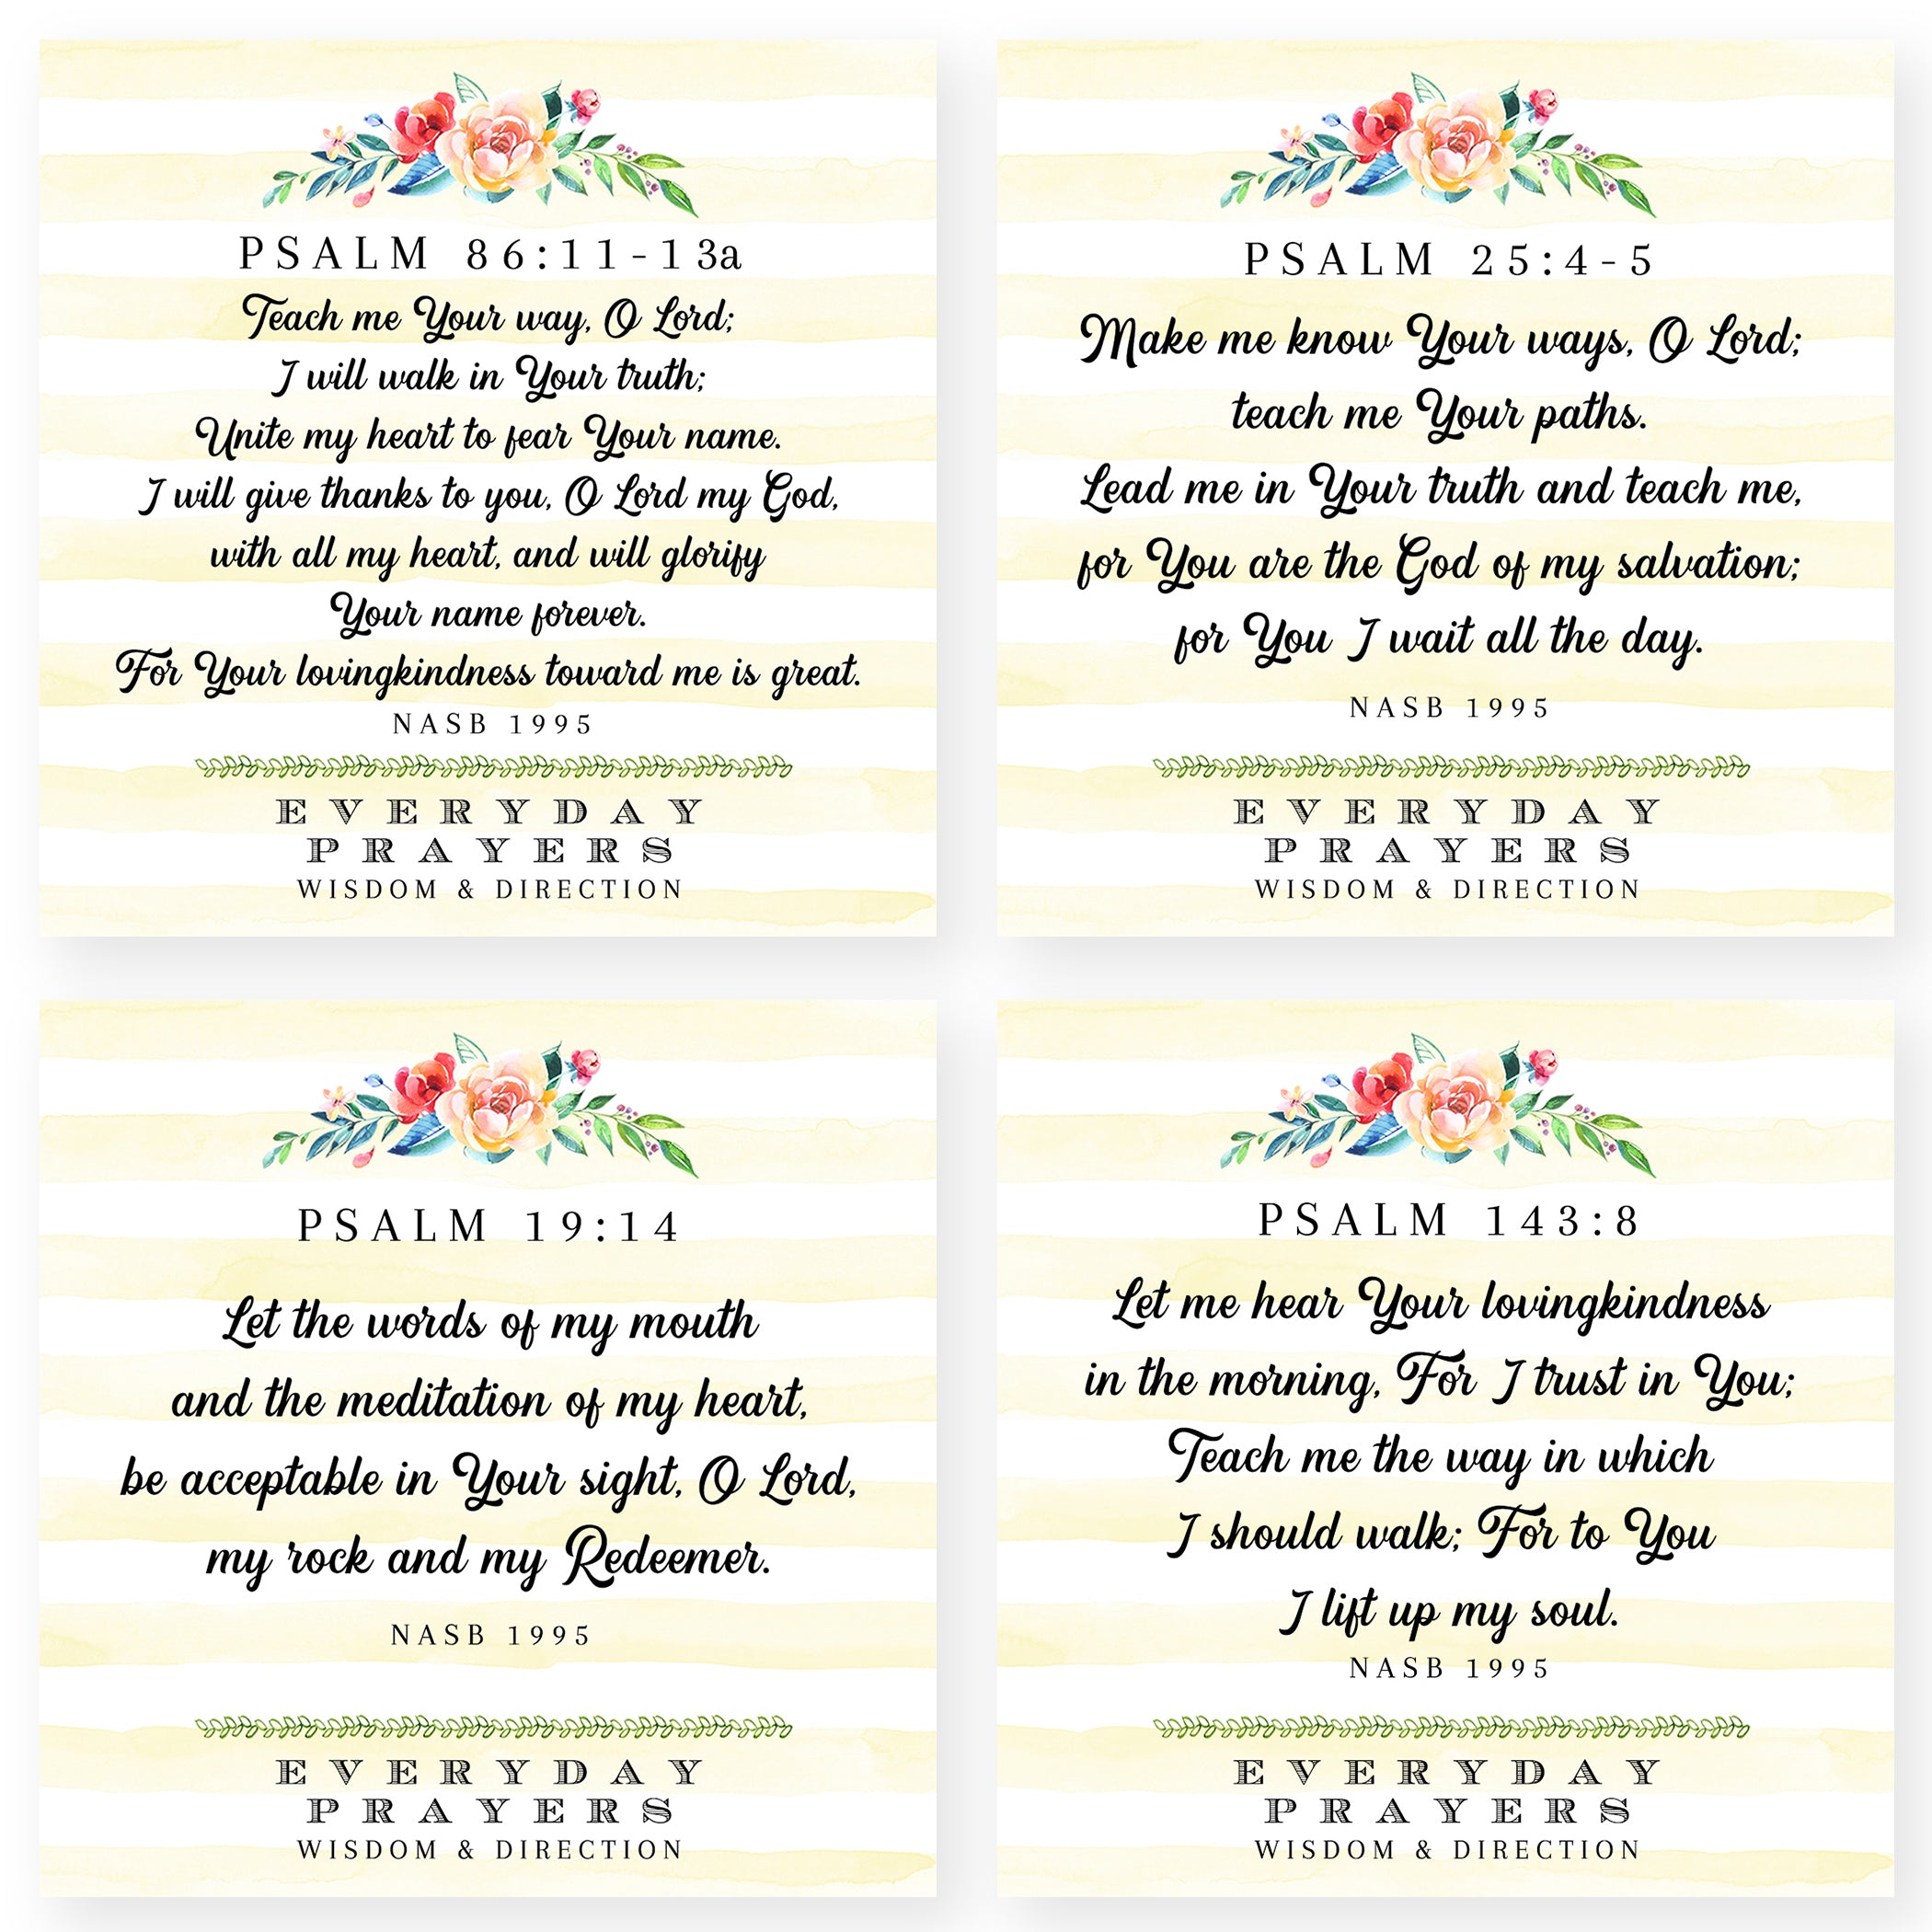 PSALM 86:11-13a
Teach me Your way, O Lord;
I will walk in Your truth;
Unite my heart to fear Your name.
I will give thanks to you, O Lord my God,
with all my heart, and will glorify
Your name forever.
For Your lovingkindness toward me is great.
NASB 1995
EVERYDAY
PRAYERS
WISDOM & DIRECTION
PSALM 25:4-5
Make me know Your ways, O Lord;
teach me Your paths.
Lead me in Your truth and teach me,
for You are the God of my salvation;
for You I wait all the day.
NASB 1995
EVERYDAY
PRAYERS
WISDOM & DIRECTION
PSALM 19:14
Let the words of my mouth
and the meditation of my heart,
be acceptable in Your sight, O Lord,
my rock and my Redeemer.
NASB 1995
EVERYDAY
PRAYERS
WISDOM & DIRECTION
PSALM 143:8
Let me hear Your lovingkindness
in the morning, For I trust in You;
Teach me the way in which
I should walk; For to You
I lift up my soul.
NASB 1995
EVERYDAY
PRAYERS
WISDOM & DIRECTION